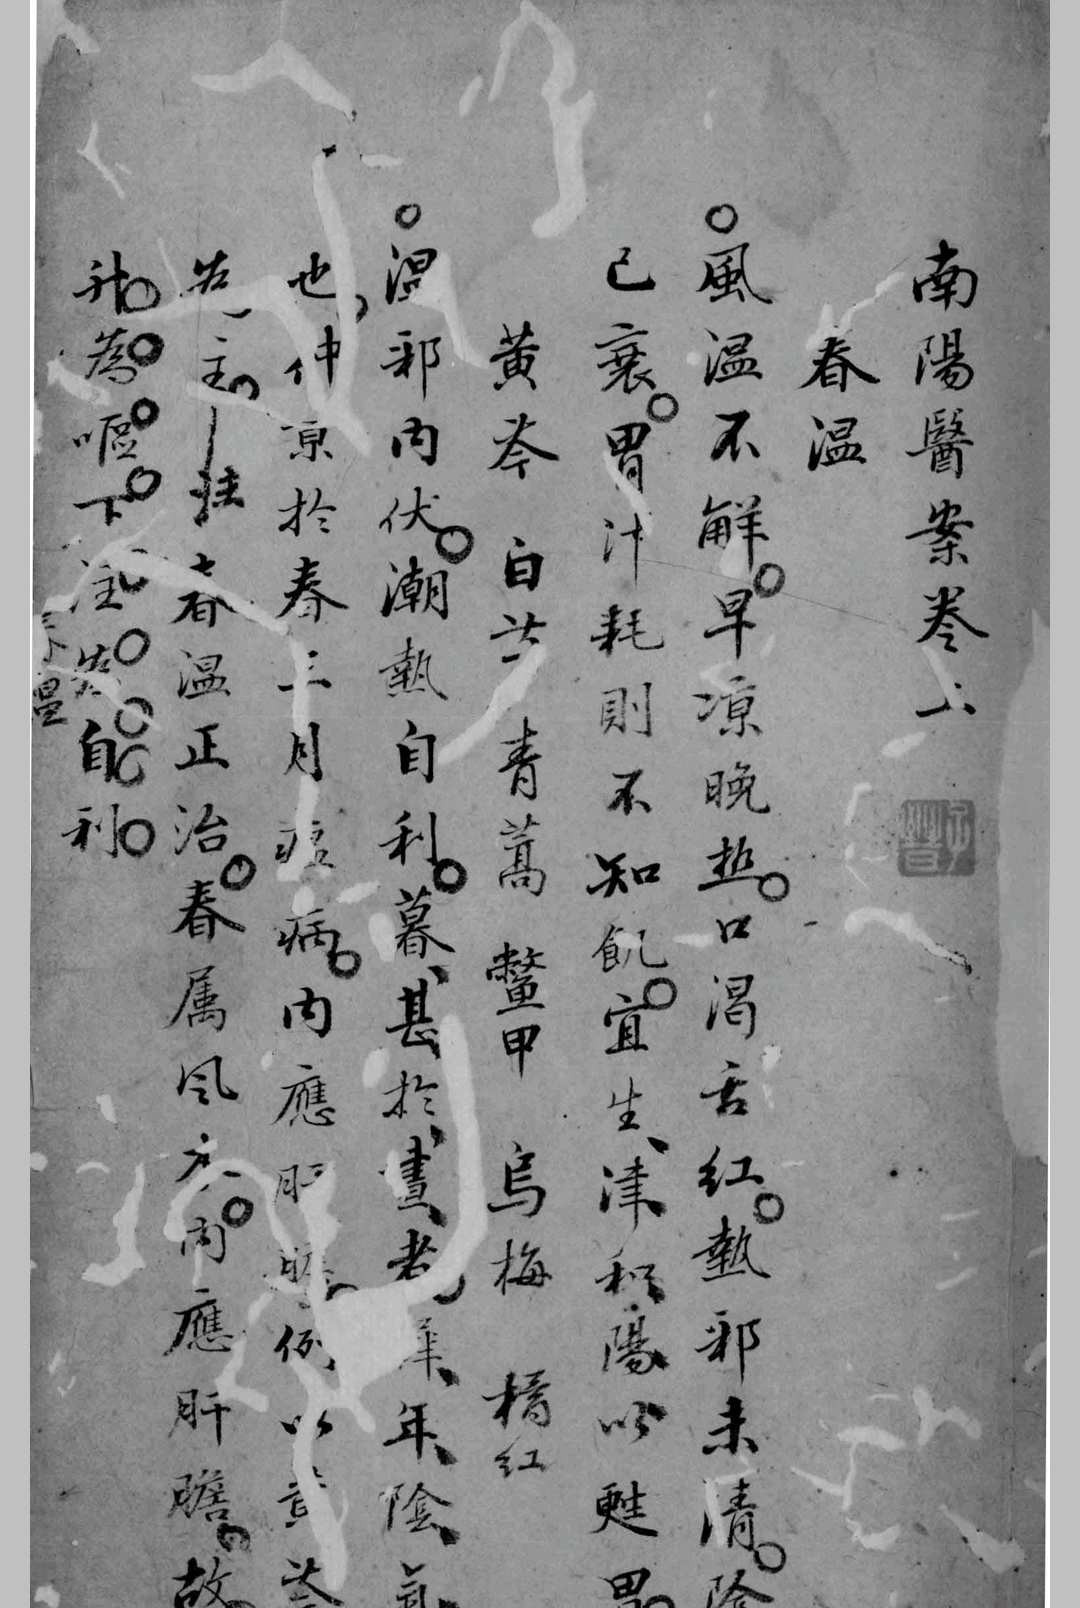 南陽醫案卷上
春温
風温不解早凉晚热口渴舌红熱邪未清陰
已衰胃汁耗則不知飢宜生津和陽以甦胃
黄芩 白芍 青蒿 鳖甲 烏梅 橘红
温邪内伏潮熱自利暮甚於晝者年陰氣
也仲京於春三月瘟病内應肝胆例以黄芩
為主 註春温正治春属风木内應肝膽故
升為嘔下注為自利
春温